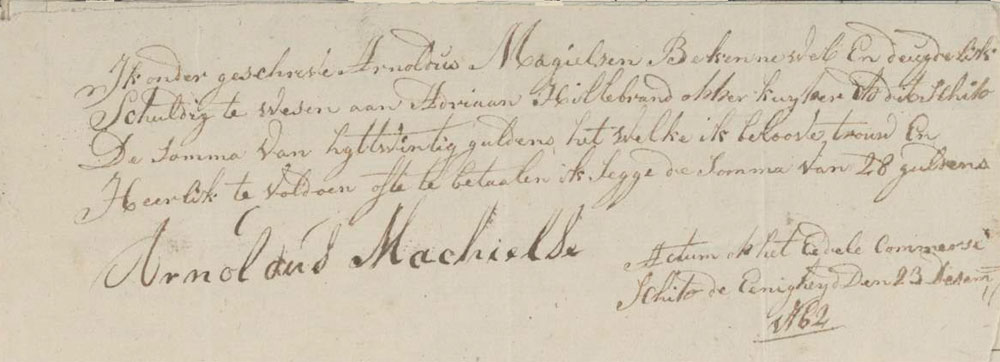 Ik onder geschreve Arnoldus Magielsen Bekenne wel En deugdelik
Schuldig te wesen aan Adriaan Hillebrand opper kuyper op dit Schip
De Somma van agttwintig guldens, het welke ik beloove, trouw En
Heerlik te voldoen ofte te betaalen ik segge de Somma van 28 guldens
Arnoldus Machielse
Actum op het Eedele Commersi
Schip de Eenigheyd Den 23 Desem
1762